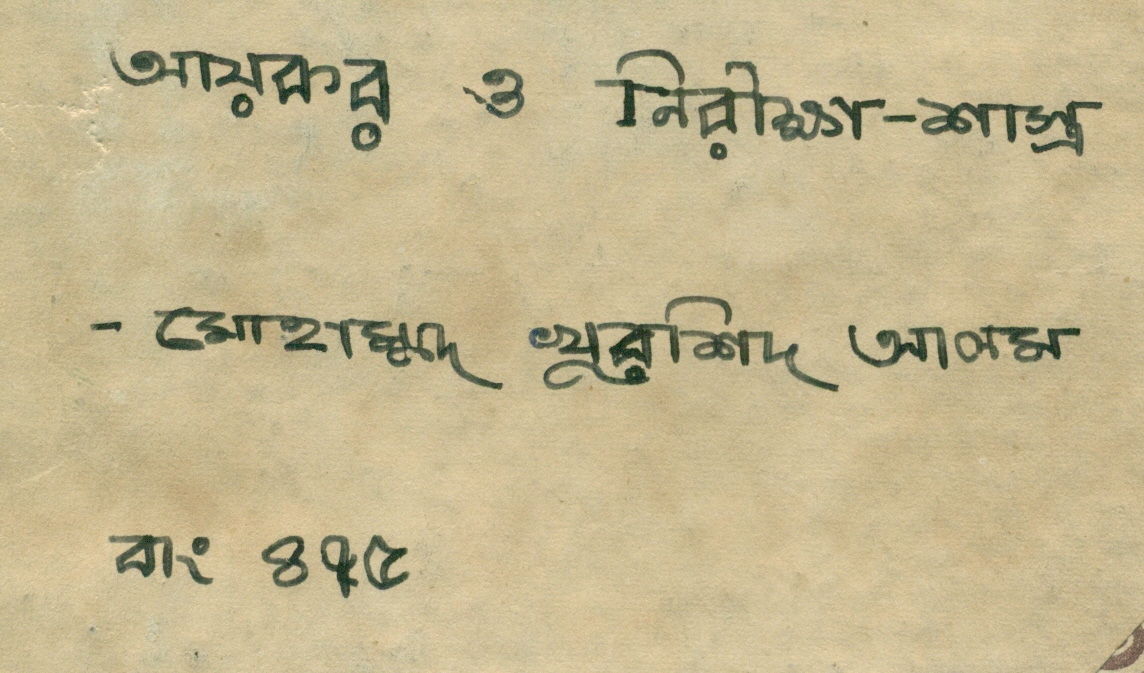 আয়কর ও নিরীক্ষা-শাস্ত্র
- মোহাম্মদ খুরশিদ আলম
বাং ৪৭৫